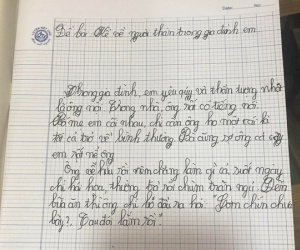 Đề bài: Kể về người thân trong gia đình em
Trong gia đình, em yêu quý và thần tượng nhất
là ông nội. Trong nhà, ông rất có tiếng nói.
Bố mẹ em cãi nhau, chỉ cần ông ho một cái là
tất cả trở về bình thường. Bố cũng sợ ông cơ
em rất nể ông
Ông về hưu rồi nên chẳng làm gì cả, suốt ngày
chỉ hái hoa, thưởng trà rồi chùm trăn ngủ. Đến
bữa cơm thì ông chỉ hé đầu ra hỏi: "Cơm chín chưa
bay?. Tao đói lắm rồi".